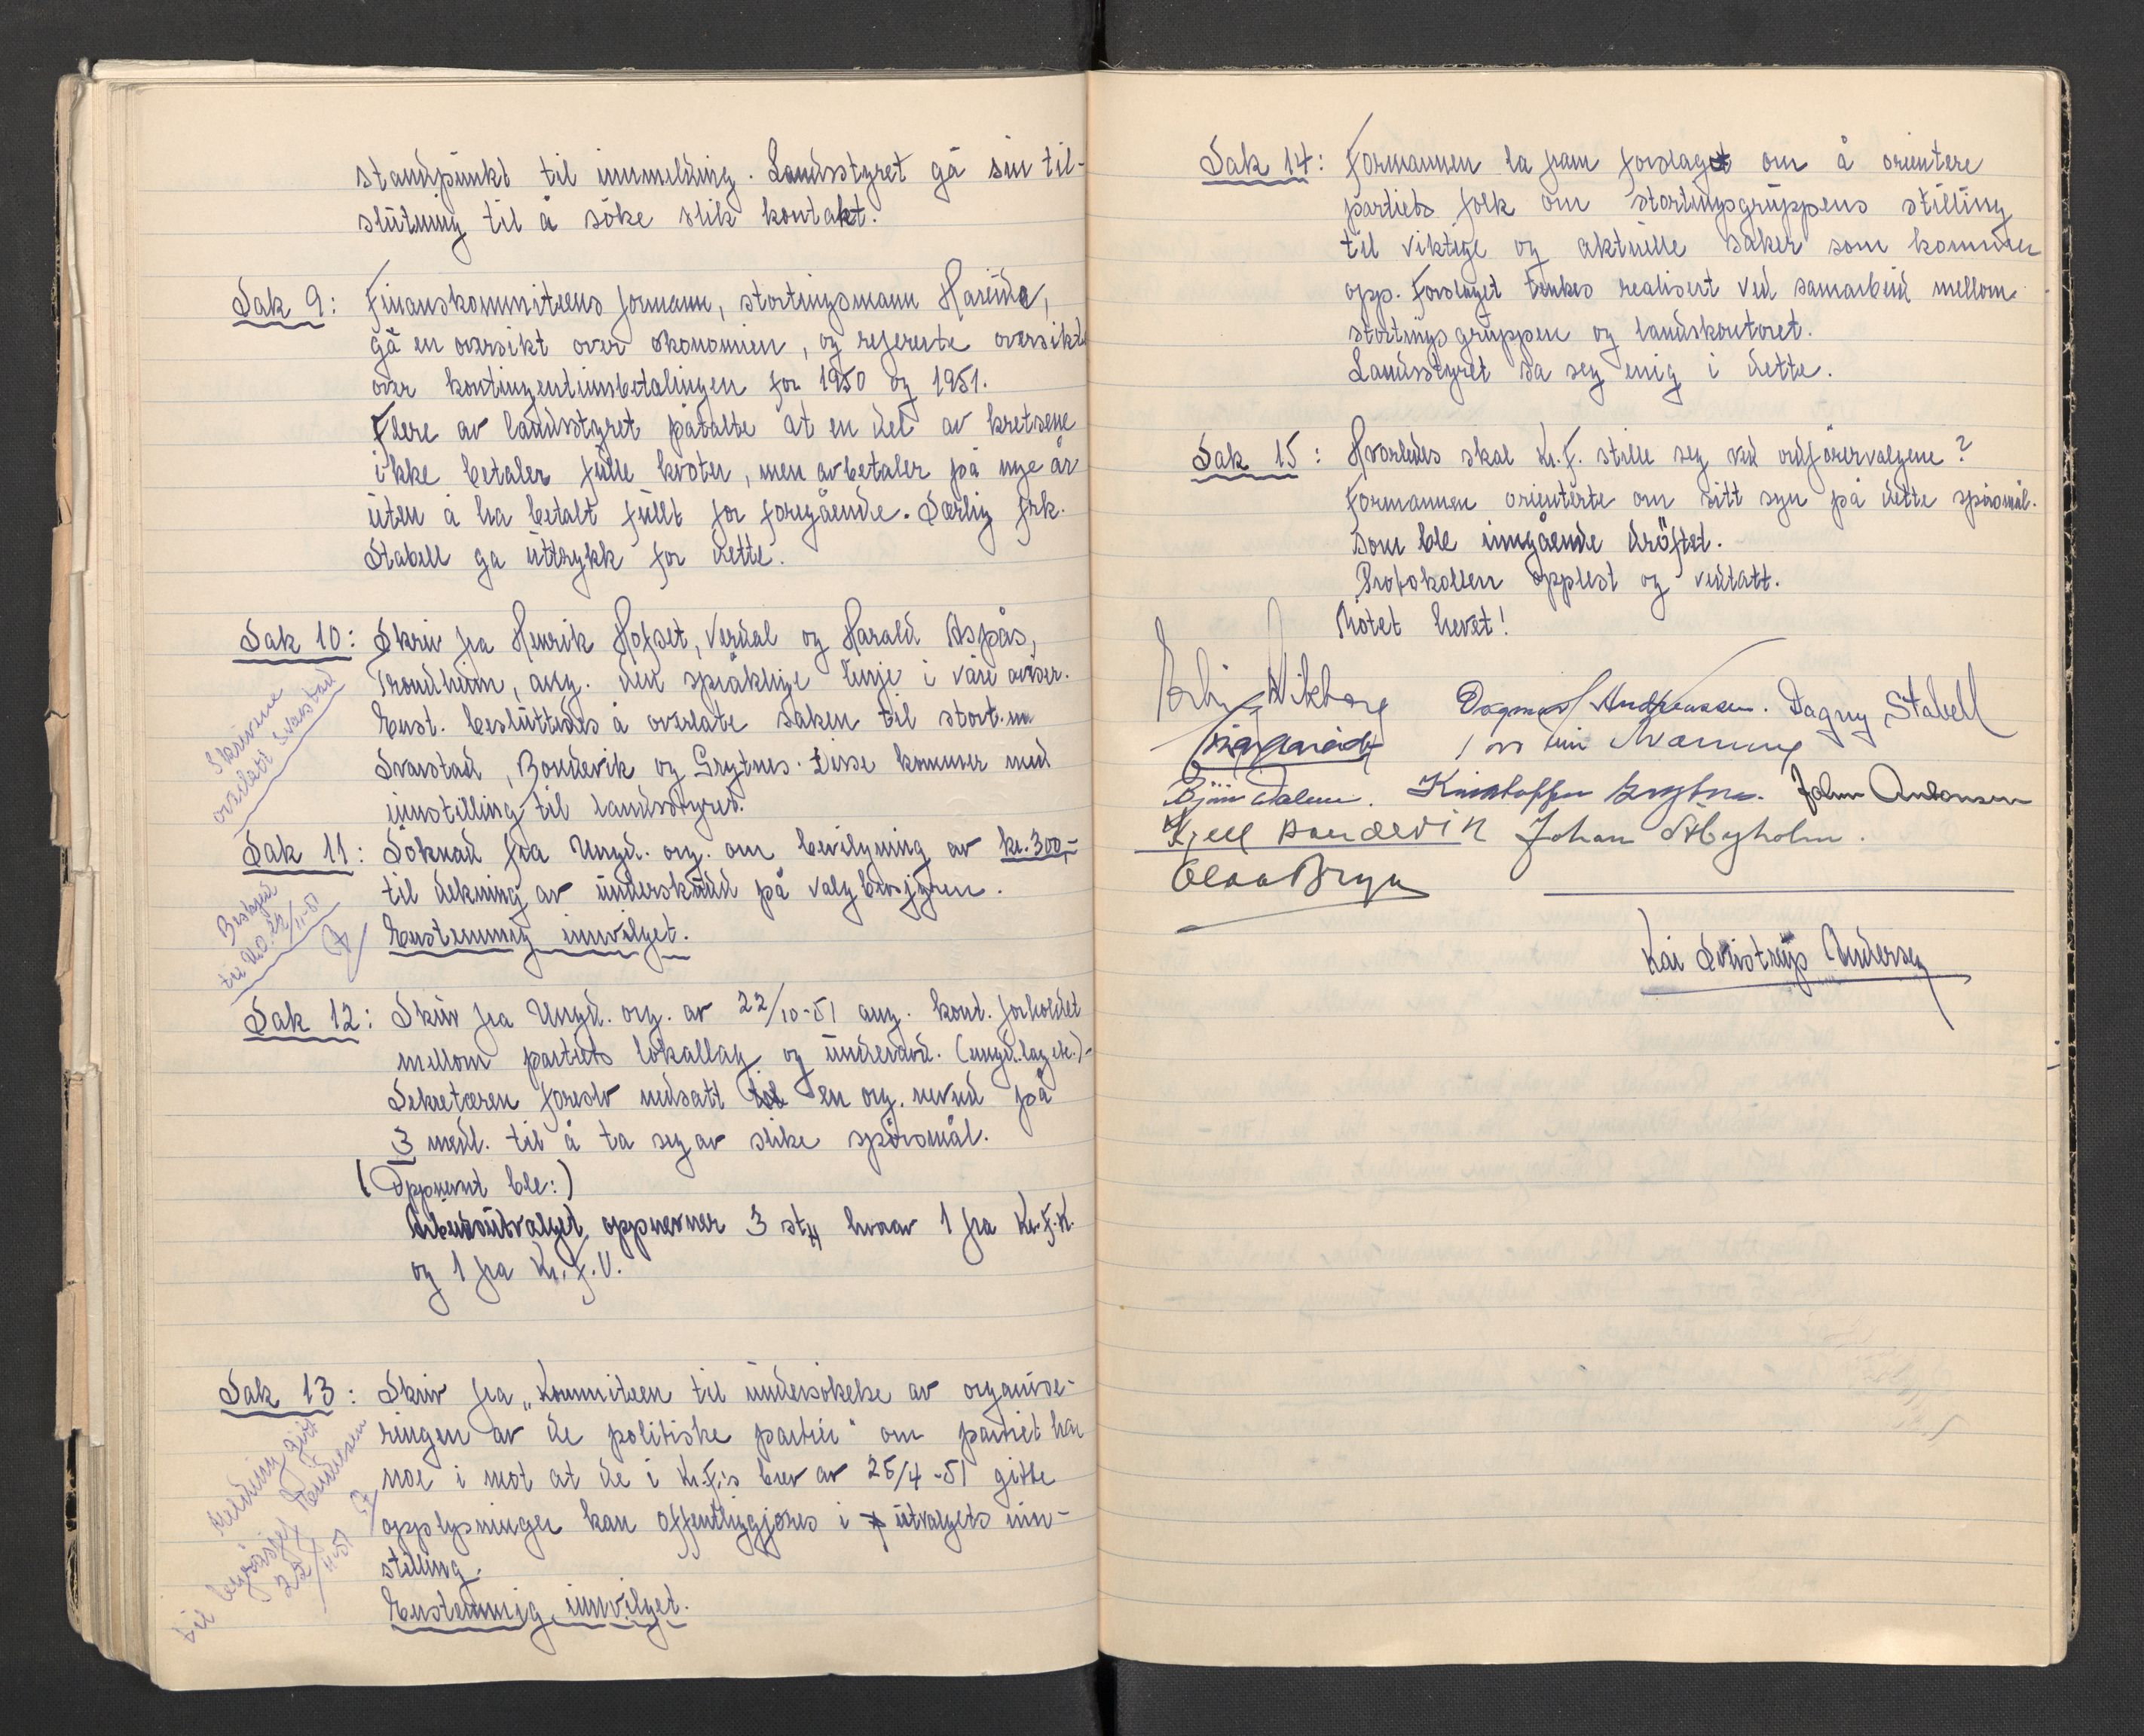 standpunkt til innmelding. Landsstyret ga sin til-
slutning til å söke slik kontakt.
Sak 9: Finanskommiteens formann, stortingsmann Hareide,
ga en oversikt over ökonomien, og refererte oversikt
over kontingentinnbetalingen for 1950 og 1951.
Flere av landsstyret påtalte at en del av kretsene
ikke betaler fulle kvoter, men avbetaler på nye år
uten å ha betalt fullt for foregående. Særlig frk.
Stabell ga uttrykk for dette.
Sak 10: Skriv fra Henrik Hofset, Verdal og Harald Aspås,
Trondheim, ang. den språklige linje i våre aviser.
Enst. besluttedes å overlate saken til stort.m
Svarstad, Bondevik og Grytnes. Disse kommer med
innstilling til landsstyret.
Skrivene
overlatt Svarstad
Sak 11: Söknad fra Ungd. org. om bevilgning av kr. 300,-
til dekning av underskudd på valgbrosjyren.
Enstemmig innvilget.
Beskjed
til U.O. 22/11-51
Sak 12: Skriv fra Ungd. org. av 22/10-51 ang. kont. forholdet
mellom partiets lokallag og underavd. (ungd.lag etc.)-
Sekretæren foreslo nedsatt en org. nevnd på
3 medl. til å ta seg av slike spörsmål.
(Oppnevnt ble:)
Arbeidsutvalget oppnevner 3 stk hvorav 1 fra Kr.F.K.
og 1 fra Kr.F.U.
Sak 13: Skriv fra „Kommiteen til undersökelse av organise-
ringen av de politiske partier" om partiet har
noe i mot at de i Kr.F.'s brev av 25/4-51 gitte
opplysninger kan offentliggjöres i utvalgets inn-
stilling.
Enstemmig innvilget.
Melding gitt
til byråsjef
22/11-51
Sak 14: Formannen la fram forslaget om å orientere
partiets folk om stortingsgruppens stilling
til viktige og aktuelle saker som kommer
opp. Forslaget tenkes realisert ved samarbeid mellom
stortingsgruppen og landskontoret.
Landsstyret sa seg enig i dette.
Sak 15: Hvorledes skal Kr.F. stille seg ved ordförervalgene?
Formannen orienterte om sitt syn på dette spörsmål.
Som ble inngående dröftet.
Protokollen opplest og vedtatt.
Mötet hevet!
Erling Wikborg Dagmar Andreassen. Dagny Stabell
Kristoffer Grytnes. Johan Antonsen
Kjell Bondevik Johan Abyholm.
Olaa Bryn
Kai Andersen